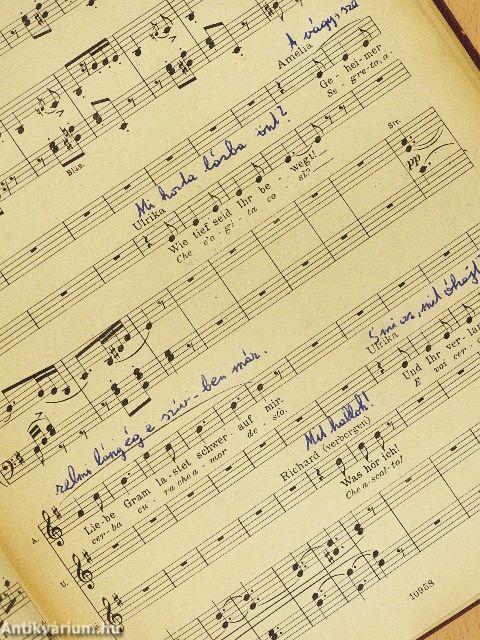 A vágy, sza
Amelia
Ge - hei - mer
Se - gre - to, a -
Bläs.
Mi hozta lázba önt?
Ulrika
Wie tief seid Ihr be - wegt!
Che v'a - gi - ta co - sì?
Str.
pp
Ulrika
Und Ihr ver - lan
E voi cer -
relmi lángég e szív - ben már.
Mit hallok!
Richard (verborgen)
Was hör ich!
Che a-scol-to!
A.
Lie - be Gram la - stet schwer auf mir.
cer - ba cu - ra che a - mor de - stò.
U.
10958
Antikvárium.hu